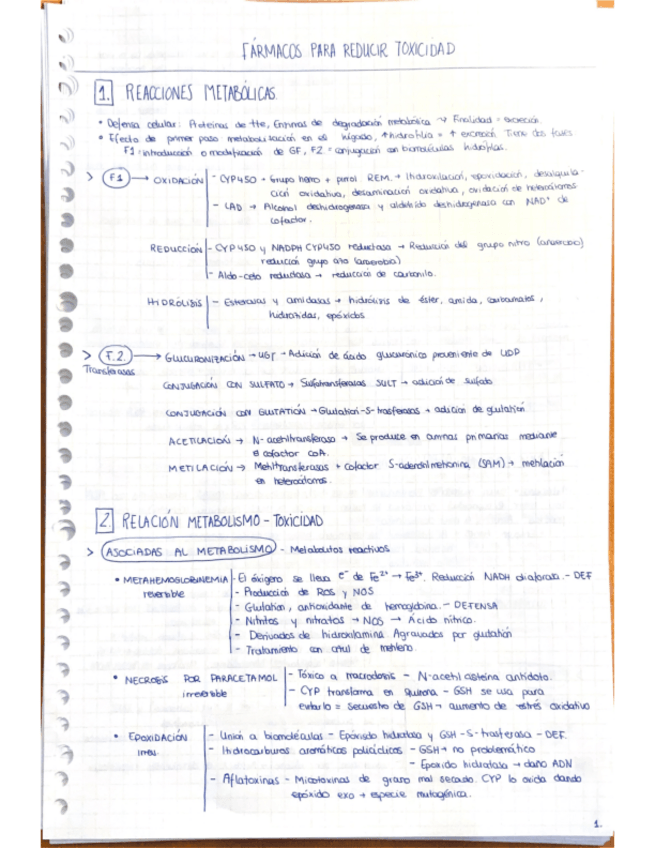 FÁRMACOS PARA REDUCIR TOXICIDAD
1. REACCIONES METABÓLICAS
• Defensa celular: Proteínas de tte, Enzimas de degradación metabólica → Finalidad = excreción.
• Efecto de primer paso metabolización en el hígado, ↑hidrofilia = ↑ excreción. Tiene dos fases
F1 = introducción o modificación de GF, F2 = conjugación con biomoléculas hidrófilas.
> F1 → OXIDACIÓN - CYP450 → Grupo hemo + pirrol REM. → Hidroxilación, epoxidación, desalquila-
ción oxidativa, desaminación oxidativa, oxidación de heteroátomos
- LAD → Alcohol deshidrogenasa y aldehído deshidrogenasa con NAD⁺ de
cofactor.
REDUCCIÓN - CYP450 y NADPH CYP450 reductasa → Reducción del grupo nitro (anaerobio)
reducción grupo azo (anaerobio)
- Aldo-ceto reductasa → reducción de carbonilo.
HIDRÓLISIS - Esterasas y amidasas → hidrólisis de éster, amida, carbamatos,
hidrazidas, epóxidos
> F.2. → GLUCURONIZACIÓN → UGT → Adición de ácido glucurónico proveniente de UDP
Transferasas
CONJUGACIÓN CON SULFATO → Sulfotransferasas SULT → adición de sulfato
CONJUGACIÓN CON GLUTATIÓN → Glutation-S-trasferasas → adición de glutatión
ACETILACIÓN → N-acetiltransferasa → Se produce en aminas primarias mediante
el cofactor coA.
METILACIÓN → Metiltransferasas + cofactor S-adenosilmetionina (SAM) → metilación
en heteroátomos.
2. RELACIÓN METABOLISMO - TOXICIDAD
> ASOCIADAS AL METABOLISMO - Metabolitos reactivos
• METAHEMOGLOBINEMIA - El oxígeno se lleva e⁻ de Fe²⁺ → Fe³⁺. Reducción NADH diaforasa. - DEF
reversible - Producción de ROS y NOS
- Glutatión, antioxidante de hemoglobina. - DEFENSA
- Nitritos y nitratos → NOS → Ácido nítrico.
- Derivados de hidroxilamina. Agravados por glutatión
- Tratamiento con azul de metileno.
• NECROSIS POR PARACETAMOL - Tóxico a macrodosis - N-acetil cisteína antídoto.
irreversible - CYP transforma en quinona - GSH se usa para
evitarlo = Secuestro de GSH → aumento de estrés oxidativo
• EPOXIDACIÓN - Unión a biomoléculas - Epóxido hidratasa y GSH-S-trasferasa - DEF.
irrev. - Hidrocarburos aromáticos policíclicos - GSH → no problemático
- Epóxido hidratasa → daño ADN
- Aflatoxinas - Micotoxinas de grano mal secado. CYP lo oxida dando
epóxido exo → especie mutagénica.
1.